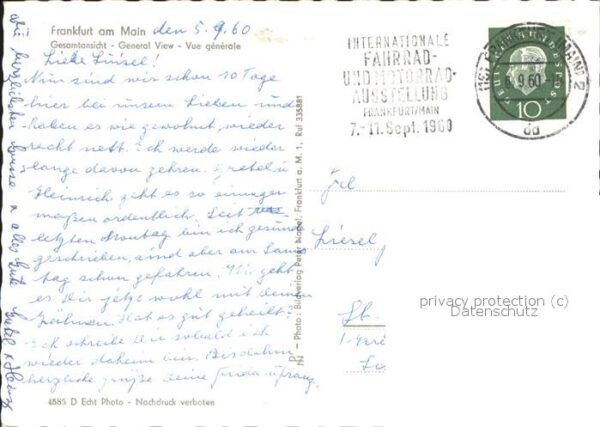 Frankfurt am Main den 5.9.60
Gesamtansicht - General View - Vue générale
Liebe Liesel!
Nun sind wir schon 10 Tage
hier bei unsern Lieben und
haben es wie gewohnt, wieder
recht nett. Ich werde wieder
lange davon zehren. Gretel u
Heinrich geht es so einiger
maßen ordentlich. Seit
letzten Montag bin ich gesund
geschrieben, sind aber am Sams
tag schon gefahren. Wie geht
es Dir jetzt wohl mit Deinen
Zähnen. Hat es gut geheilt?
Ich schreibe Dir sobald ich
wieder daheim bin. Bis dahin
herzliche Grüße Deine Frieda
die herzlichsten Grüsse u alles Gute Gretel u Heinz
4585 D Echt Photo - Nachdruck verboten
Photo: Bildverlag Peter Nagel, Frankfurt a. M. 1, Ruf 335881
INTERNATIONALE
FAHRRAD-
UND MOTORRAD-
AUSSTELLUNG
FRANKFURT/MAIN
7.-11. Sept. 1960
(16) FRANKFURT (MAIN) 2
9.60
dd
DEUTSCHE BUNDESPOST
10
Frl
Liesel
privacy protection (c)
Datenschutz